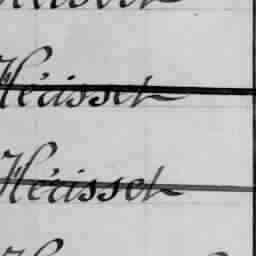 Hérisset
Hérisset